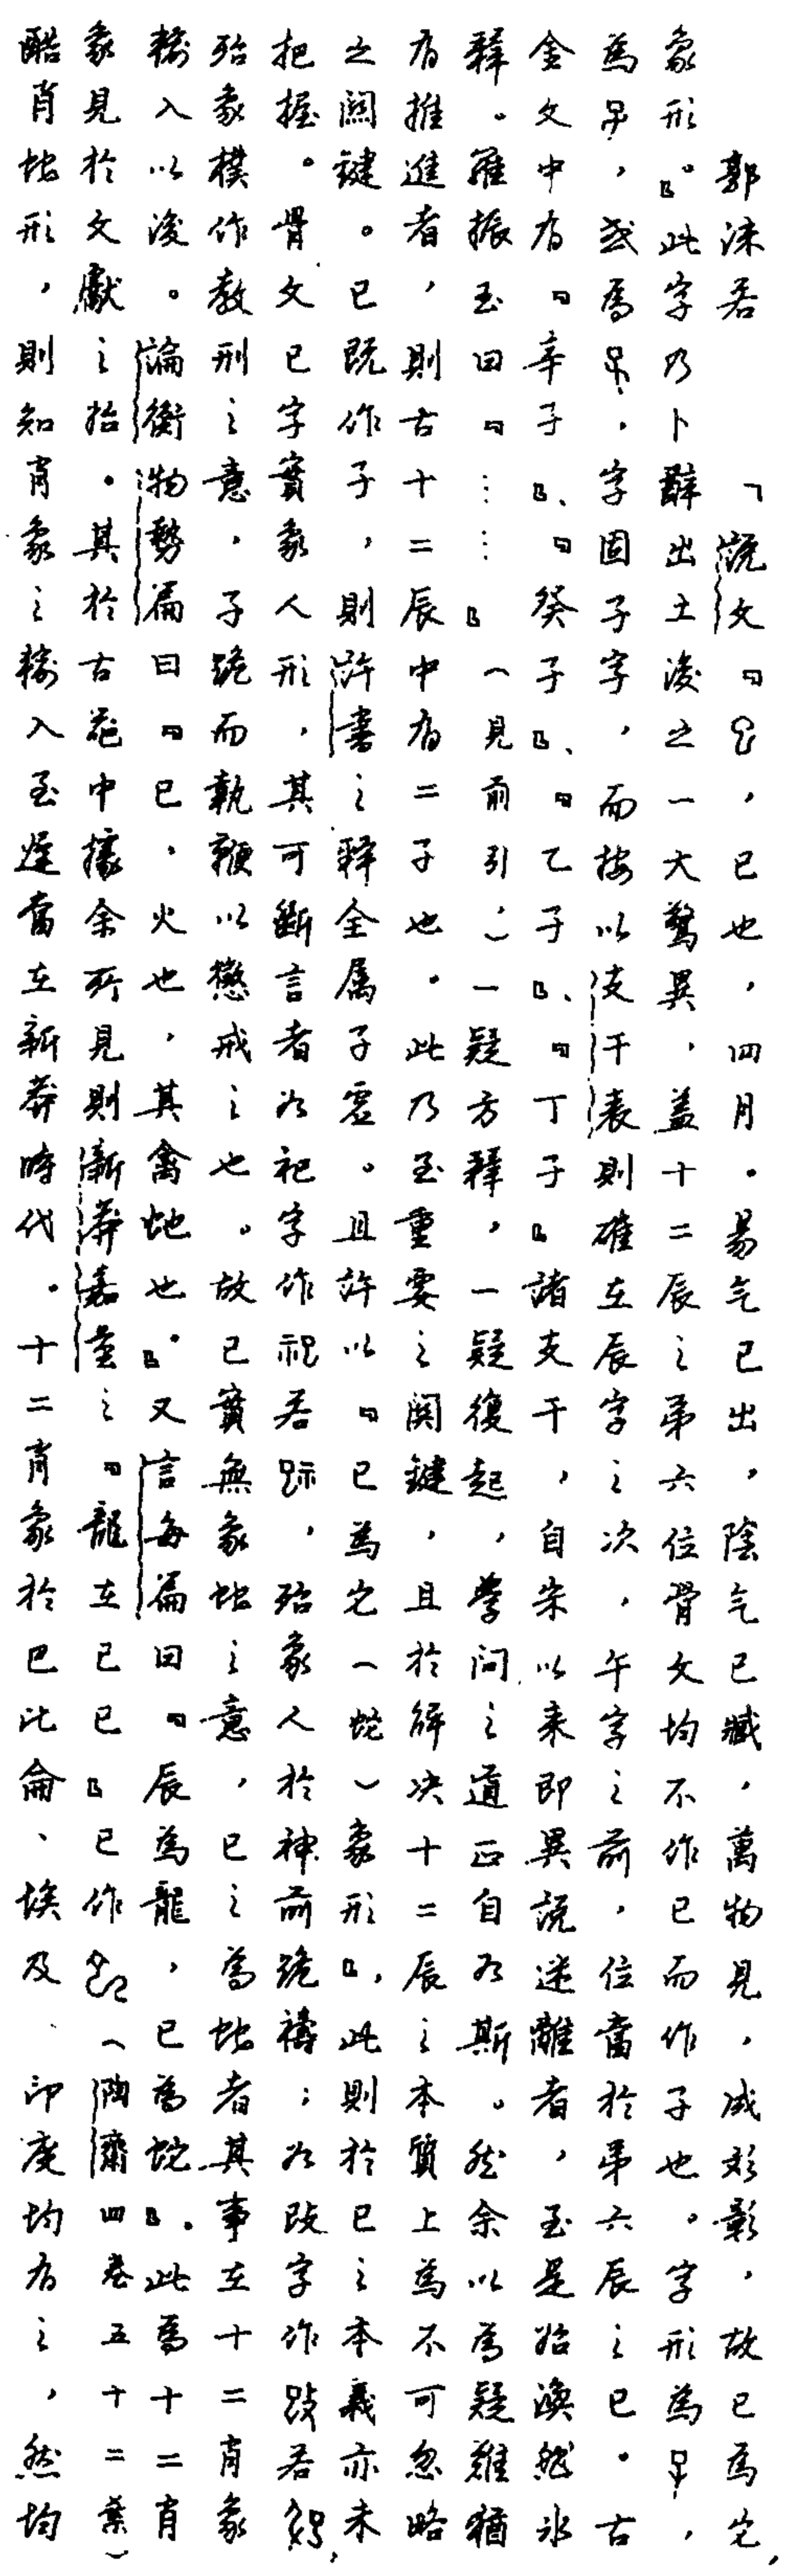 郭沫若　「說文『，已也，四月。昜气已出，陰气已臧，萬物見，成彣彰，故已為它，
象形。』此字乃卜辭出土後之一大驚異，蓋十二辰之弟六位骨文均不作巳而作子也。字形為，
為，或為，字固子字，而按以支干表則確在辰字之次，午字之前，位當於弟六辰之巳。古
金文中有『辛子』、『癸子』、『乙子』、『丁子』諸支干，自宋以來即異說迷離者，至是始渙然冰
釋。羅振玉曰『……』（見前引）一疑方釋，一疑復起，學問之道正自如斯。然余以為疑雖猶
有推進者，則古十二辰中有二子也。此乃至重要之関鍵，且於解決十二辰之本質上為不可忽略
之関鍵。巳既作子，則許書之釋全属子虛。且許以『巳為它（蛇）象形』，此則於巳之本義亦未
把握。骨文巳字實象人形，其可斷言者如祀字作祝若，殆象人於神前跪禱；如改字作若，
殆象樸作教刑之意，子跪而執鞭以懲戒之也。故巳實無象蛇之意，巳之為蛇者其事在十二肖象
輸入以後。論衡物勢篇曰『巳，火也，其禽蛇也。』又言每篇曰『辰為龍，巳為蛇』。此為十二肖
象見於文獻之始。其於古器中據余所見則新莽嘉量之『龍在己巳』巳作（陶齋四卷五十二葉）
酷肖蛇形，則知肖象之輸入至遲當在新莽時代。十二肖象於巴比侖、埃及、印度均有之，然均